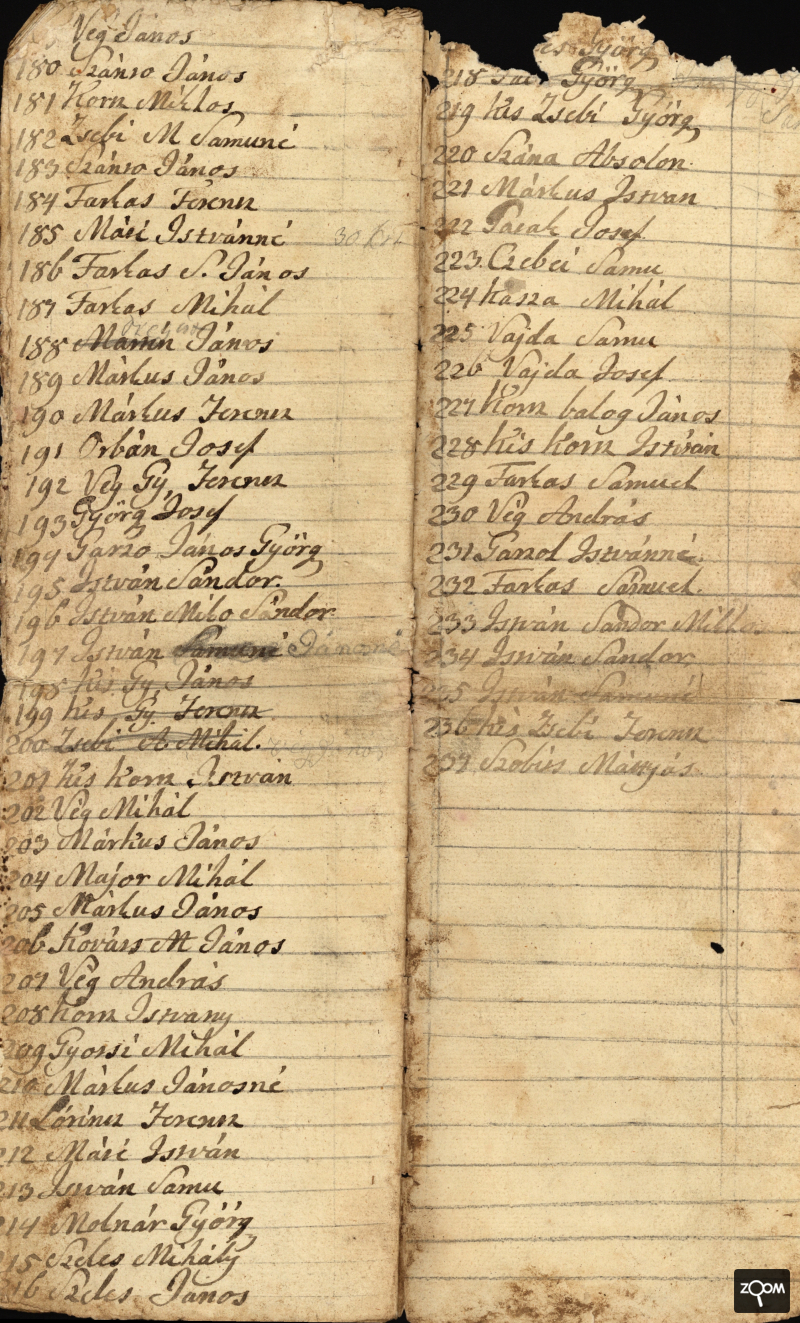 Vég János
180 Szánto János
181 Korn Miklos
182 Zsebi M Samuné
183 Szánto János
184 Farkas Ferencz
185 Máté Istvánné 30
186 Farkas S. János
187 Farkas Mihál
188 János
189 Márkus János
190 Márkus Ferencz
191 Orbán Josef
192 Vég Gy. Ferencz
193 Györg Josef
194 János Györg
195 István Sándor
196 István Milo Sándor
197 István Samuné Jánosné
198 Kis Gy. János
199 Kis Gy. Ferencz
200 Zsebi A Mihál.
201 Kis Korn István
202 Vég Mihál
203 Márkus János
204 Major Mihál
205 Márkus János
206 Kováts M János
207 Vég András
208 Korn Istvany
209 Gyorsi Mihál
210 Márkus Jánosné
211 Lórincz Ferencz
212 Máté István
213 István Samu
214 Molnár Györg
215 Szeles Mihály
216 Szeles János
Györg
218 Györg
219 Kis Zsebi Györg
220 Szána Absolon
221 Márkus Istvan
222 Josef
223 Czebei Samu
224 Kasza Mihál
225 Vajda Samu
226 Vajda Josef
227 Korn balog János
228 Kis Korn István
229 Farkas Samuel
230 Vég András
231 Istvánné
232 Farkas Sámuel
233 István Sándor
234 István Sándor
235 István Samuné
236 Kis Zsebi Ferencz
237 Mátyás
ZOOM